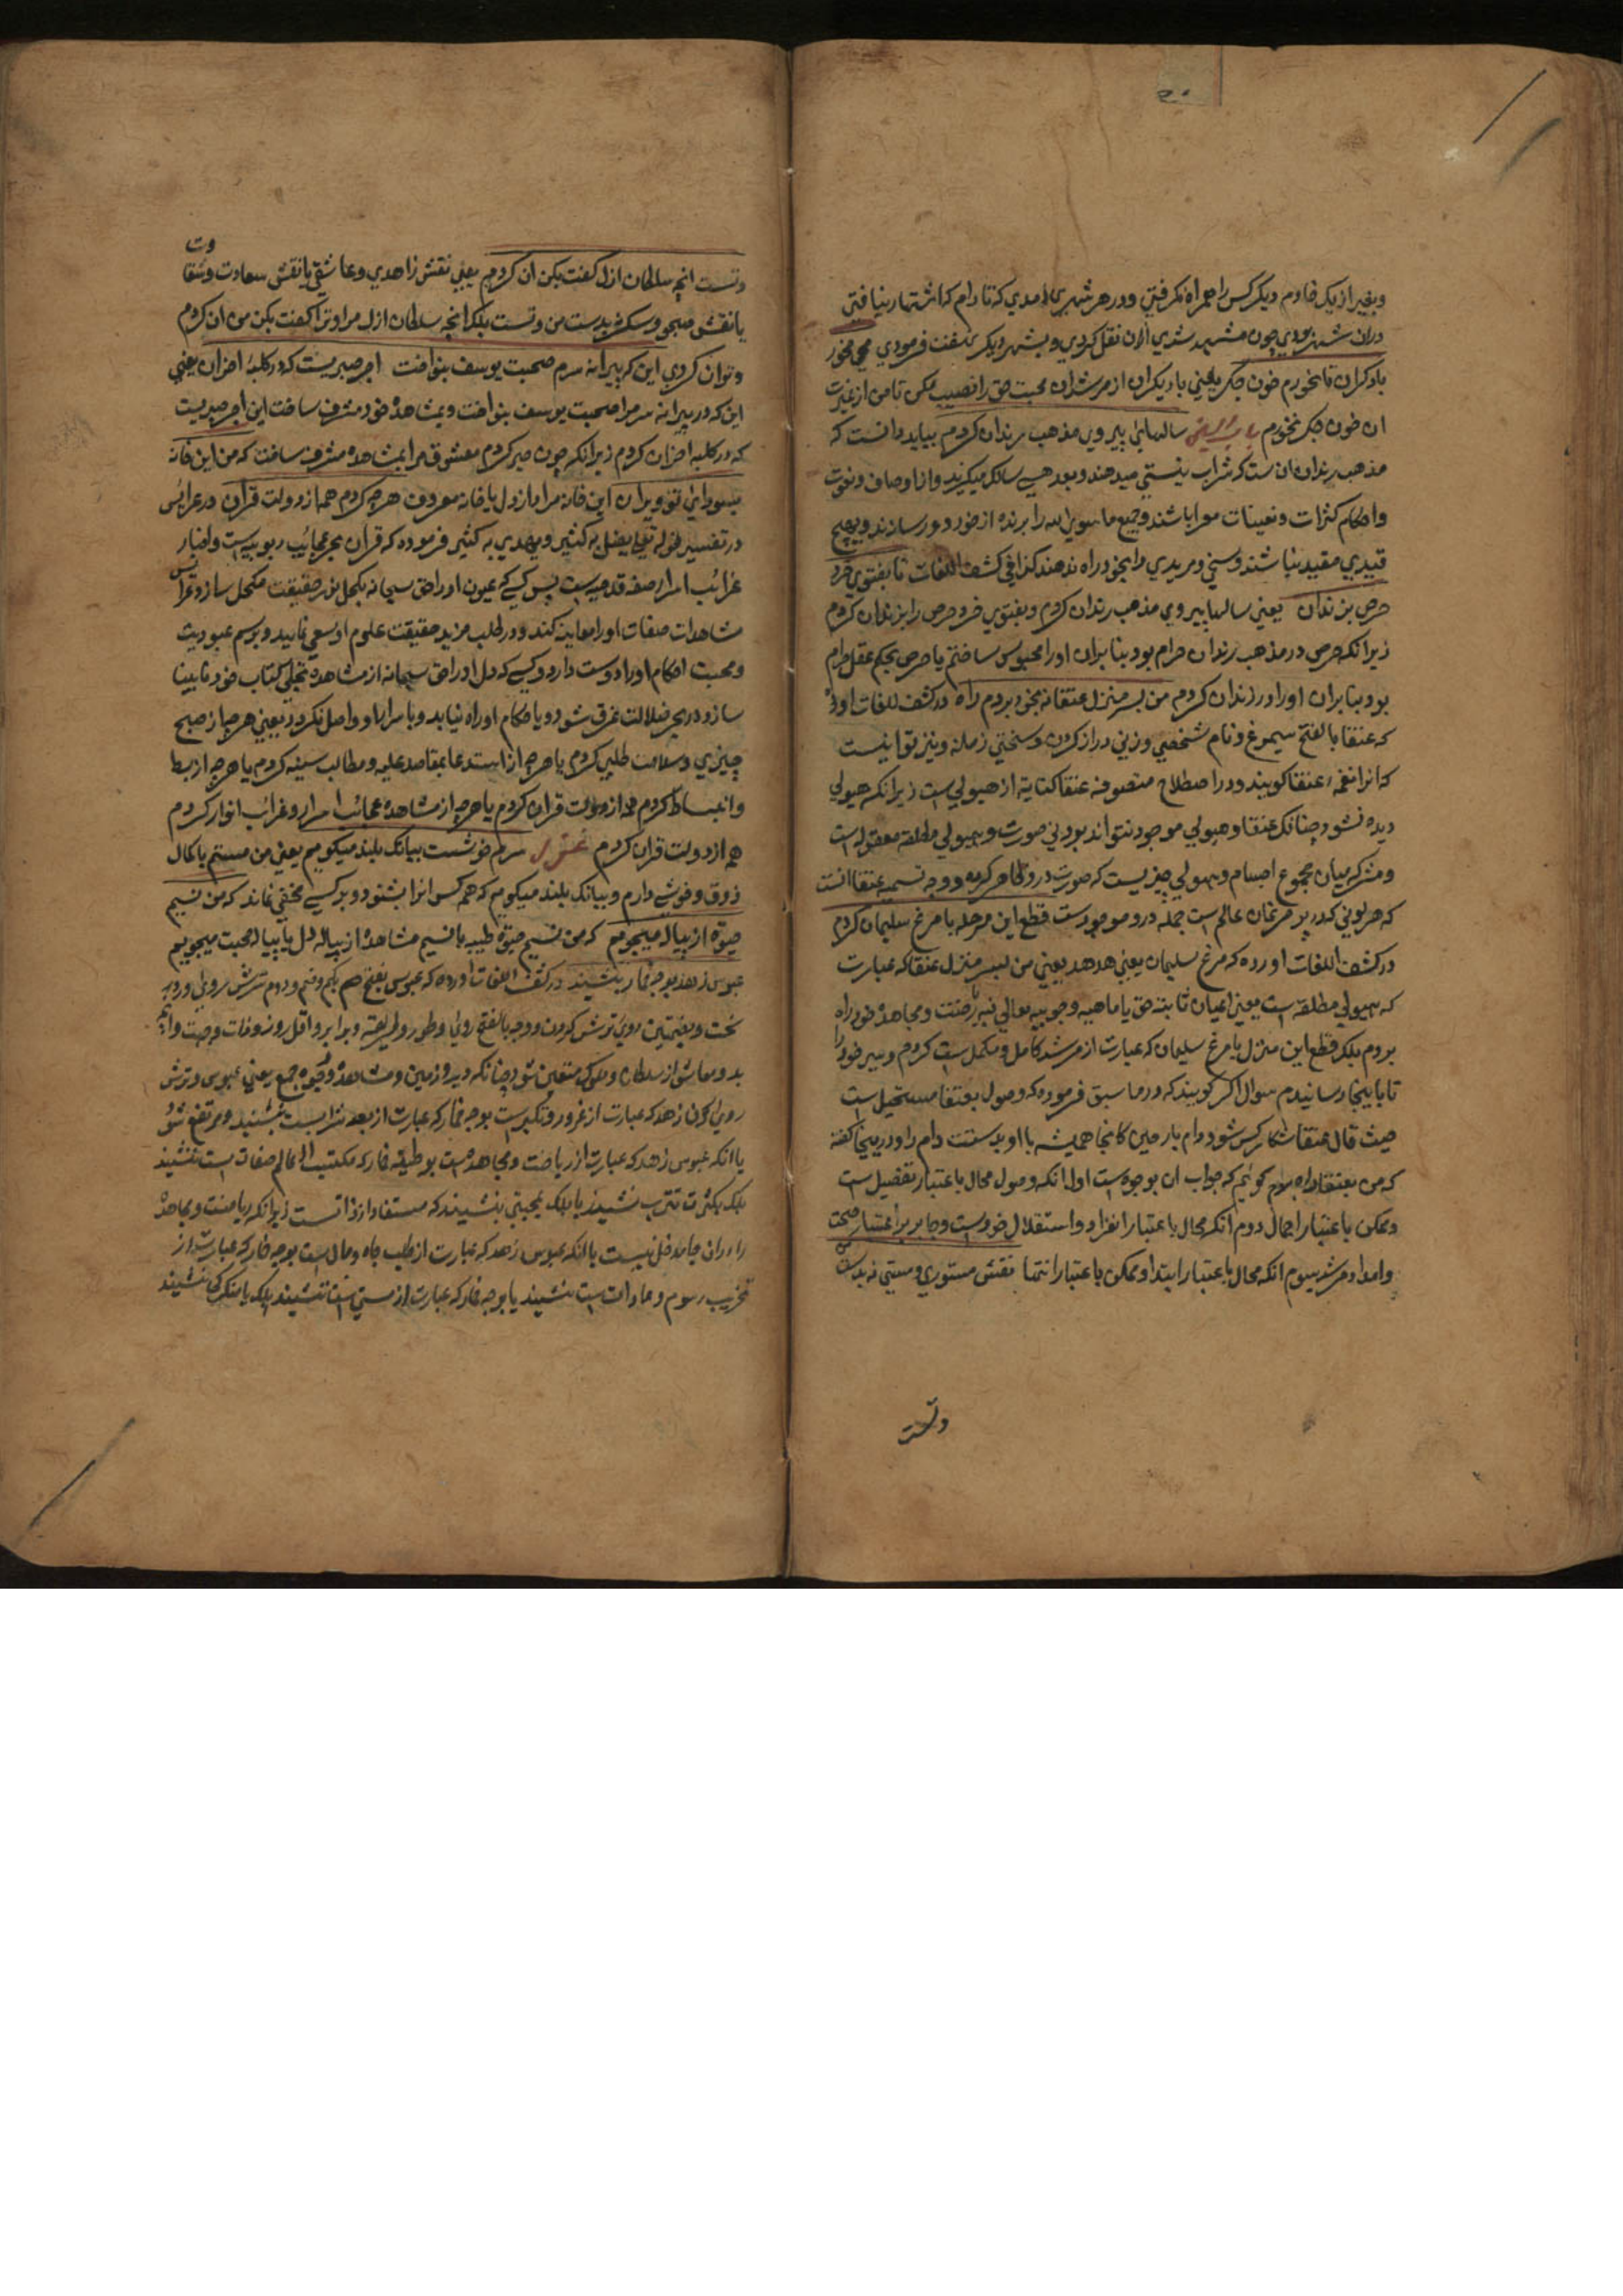 وبغیر از یک خادم دیگر کس را همراه نگرفتی ودر هر شهری که آمدی که تا دام که اشتهار نیافتی
دران شهر بودی چون مشهر شدی ازان نقل کردی و بشهر دیگر رفت فرمودی می مخور
با دگران تا نخورم خون جگر یعنی با دیگران از مرشدان محبت حق را نصیب مکن تا من از غیرت
ان خون جگر نخورم سالها پیروی مذهب رندان کردم بباید دانست که
مذهب رندان ان ست که شراب نیستی میدهند و بود هستی سالک میگیرند واز اوصاف ونعوت
واحکام کثرات وتعینات معرا باشند وجمیع ما سوی الله را برنده از خود دور سازند وبهیچ
قیدی مقید نباشند وشیخی ومریدی را بخود راه ندهند کذا فی کشف اللغات تا بفتوی خرد
حرص بزندان یعنی سالها پیروی مذهب رندان کردم وبفتوی خرد حرص را بزندان کردم
زیرانکه حرص در مذهب رندان حرام بود بنابران اورا محبوس ساختم یا حرص بحکم عقل حرام
بود بنابران اورا در زندان کردم من بسر منزل عنقا نه بخود بردم راه در کشف اللغات اورده
که عنقا بالفتح سیمرغ ونام شخصی وزنی دراز گردن وسختی زمانه ونیز نوائیست
که انرا نغمه عنقا گویند ودر اصطلاح متصوفه عنقا کنایة از هیولی ست زیرانکه هیولی
دیده نشود چنانکه عنقا وهیولی موجود نتواند بود بی صورت وهیولی مطلقه معقوله است
ومشترکه میان مجموع اجسام وهیولی چیزیست که صورت درو ظاهر گردد ووجه تسمیه عنقا انست
که هر لونی که در پر مرغان عالم است جمله درو موجودست قطع این مرحله با مرغ سلیمان کردم
در کشف اللغات اورده که مرغ سلیمان یعنی هدهد یعنی من بسر منزل عنقا که عبارت
که هیولی مطلقه است یعنی اعیان ثابته حق یا ماهیه وجوبیه تعالی نبه ریاضت ومجاهده خود راه
بردم بلکه قطع این منزل با مرغ سلیمان که عبارت از مرشد کامل ومکمل ست کردم وسیر خود را
تا باینجا رسانیدم سوال اگر گویند که در ما سبق فرموده که وصول بعنقا مستحیل است
حیث قال عنقا شکار کس نشود دام باز چین کانجا همیشه باد بدستست دام را ودر اینجا گفته
که من بعنقا راه بردم گوئیم که جواب ان بوجوه ست اول انکه وصول محال باعتبار تفصیل ست
وممکن باعتبار اجمال دوم انکه محال باعتبار انفراد واستقلال خودست وجایز بر اعتبار صحبت
وامداد مرشد سیوم انکه محال باعتبار ابتدا وممکن باعتبار انتها نقش مستوری ومستی نه بدست من
وتست
وتست انچه سلطان ازل گفت بکن ان کردم یعنی نقش زاهدی وعاشقی یا نقش سعادت وشقاوت
یا نقش صحو وسکر نه بدست من وتست بلکه انچه سلطان ازل مرا وترا گفت بکن من ان کردم
وتوان کردی این که پیرانه سرم صحبت یوسف بنواخت اجر صبریست که در کلبه احزان یعنی
این که در پیرانه سر مرا صحبت یوسف بنواخت وبمشاهده خود مشرف ساخت این اجر صبریست
که در کلبه احزان کردم زیرانکه چون صبر کردم معشوق مرا بمشاهده مشرف ساخت که من این خانه
بسودای تو ویران این خانه مراد از دل یا خانه معروف هرچه کردم همه از دولت قران در عرائس
در تفسیر قوله تعالی یضل به کثیرا ویهدی به کثیرا فرموده که قران بحر عجائب ربوبیه است واخبار
غرائب اسرار صفه قدمیه است پس کسی که عیون اورا حق سبحانه بکحل نور حقیقت مکحل سازد وعرائس
مشاهدات صفات اورا معاینه کند ودر طلب مزید حقیقت علوم او سعی نماید وبرسم عبودیت
ومحبت احکام اورا دوست دارد وکسی که دل اورا حق سبحانه از مشاهده تجلی کتاب خود نابینا
سازد در بحر ضلالت غرق شود وباحکام او راه نیابد وباسرار او واصل نگردد یعنی هرچه از صبح
چیزی وسلامت طلبی کردم یا هرچه از استدعا بمقاصد علیه ومطالب سنیه کردم یا هرچه از بسط
وانبساط کردم همه از دولت قران کردم یا هرچه از مشاهده عجائب اسرار وغرائب انوار کردم
همه از دولت قران کردم غزل سرم خوشست ببانک بلند میگویم یعنی من مستم با کمال
ذوق وخوشی دارم وببانک بلند میگویم که همه کس انرا بشنود وبر کسی مخفی نماند که من نسیم
حیوة از پیاله میجویم که من نسیم حیوة طیبه یا نسیم مشاهده از پیاله دل یا پیاله محبت میجویم
عبوس زهد بوجه خمار ننشیند در کشف اللغات اورده که عبوس بفتح یکم وضم دوم ترش روی وروز
سخت وبضمتین روی ترش کردن ووجه بالفتح روی وطور وطریقه وبرابر واقل روز وذات وجهت وانچه
بدو معاش از سلطان وملوک متعین شود چنانکه دیه وزمین ومشاهده ووجوه جمع یعنی عبوس وترش
روی کردن زهد که عبارت از غرور وتکبرست بوجه خمار که عبارت از بعد شراب ست ننشیند ومرتفع نشود
یا انکه عبوس زهد که عبارت از ریاضت ومجاهده است بوظیفه خمار که مکتسب از عالم صفات است ننشیند
بلکه بکثرت تترب نشیند یا بلکه بمحبتی بنشیند که مستفاد از ذاتست زیرانکه ریاضت ومجاهده
را دران جا مدخل نیست یا انکه عبوس زهد که عبارت از طلب جاه ومال ست بوجه خمار که عبارت از
تخریب رسوم وعادات ست ننشیند یا بوجه خمار که عبارت از مستی ست ننشیند بلکه با منکری نشیند